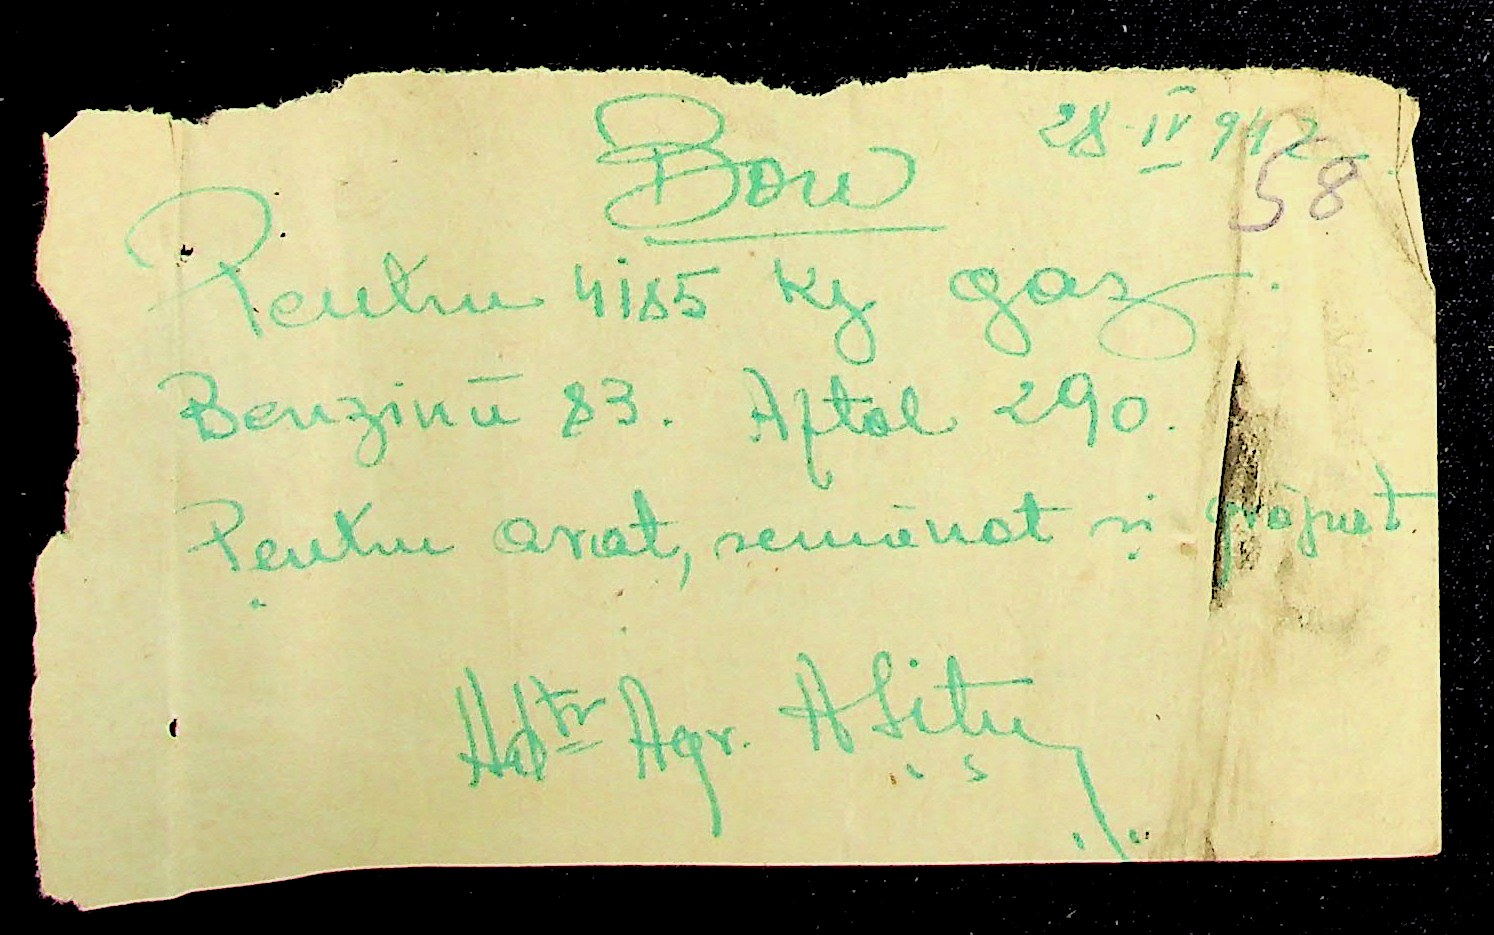 Bon
28-IV 942
58
Pentru 4185 Kg gaz.
Benzină 83. Aftol 290.
Pentru arat, semănat și grăpat.
Adtr Agr.